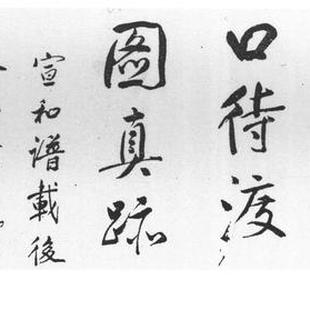 口待渡
圖真跡
宣和譜載後